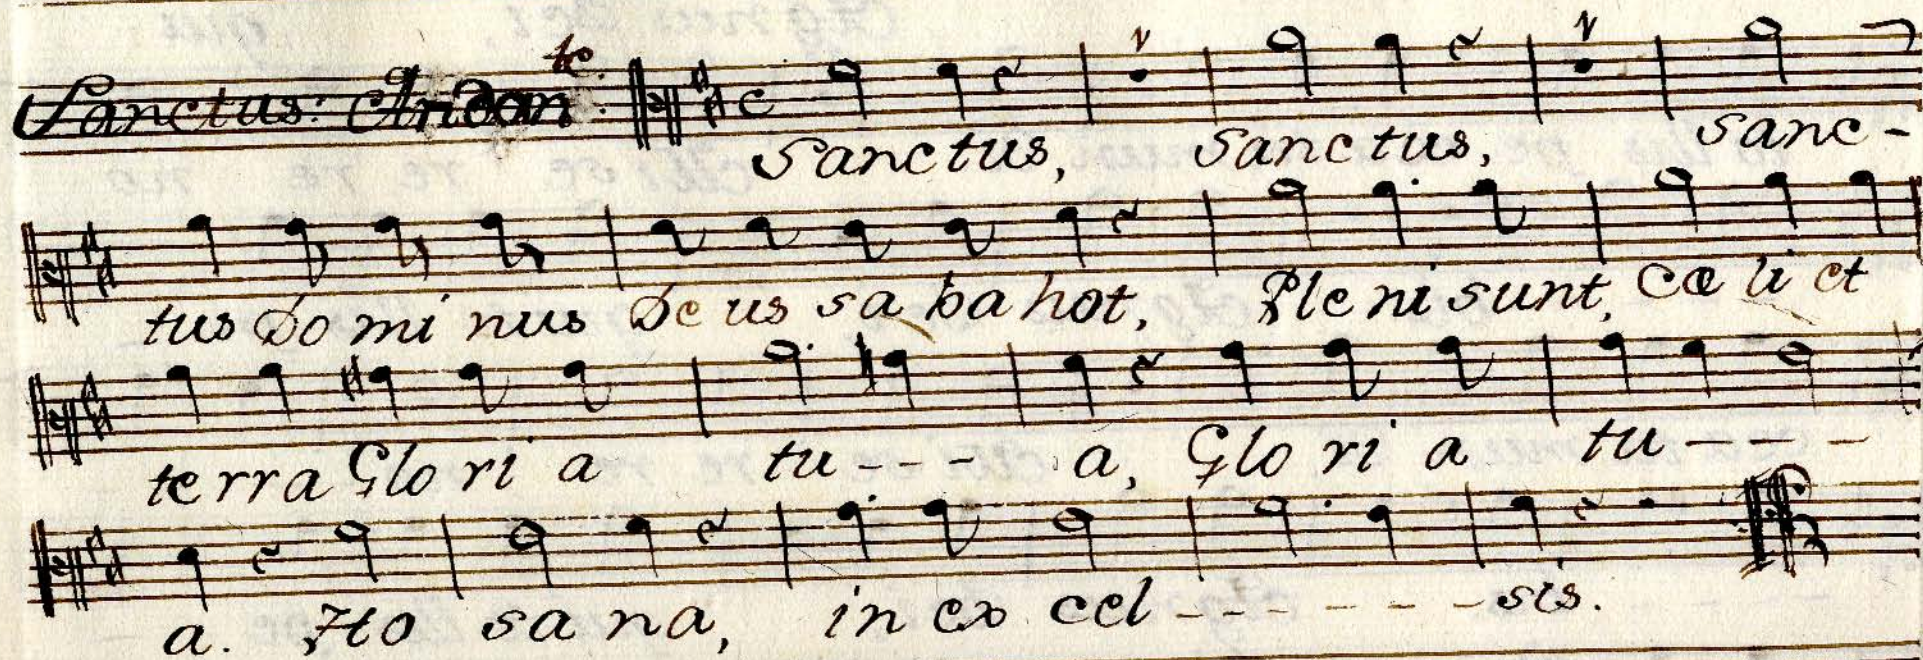 Sanctus: Andan.te
Sanctus, Sanctus, Sanc-
tus Do mi nus De us sa ba hot, Ple ni sunt, cæ li et
te rra Glo ri a tu - - - a, Glo ri a tu - - - -
a. Ho sa na, in ex cel - - - - - - - sis.